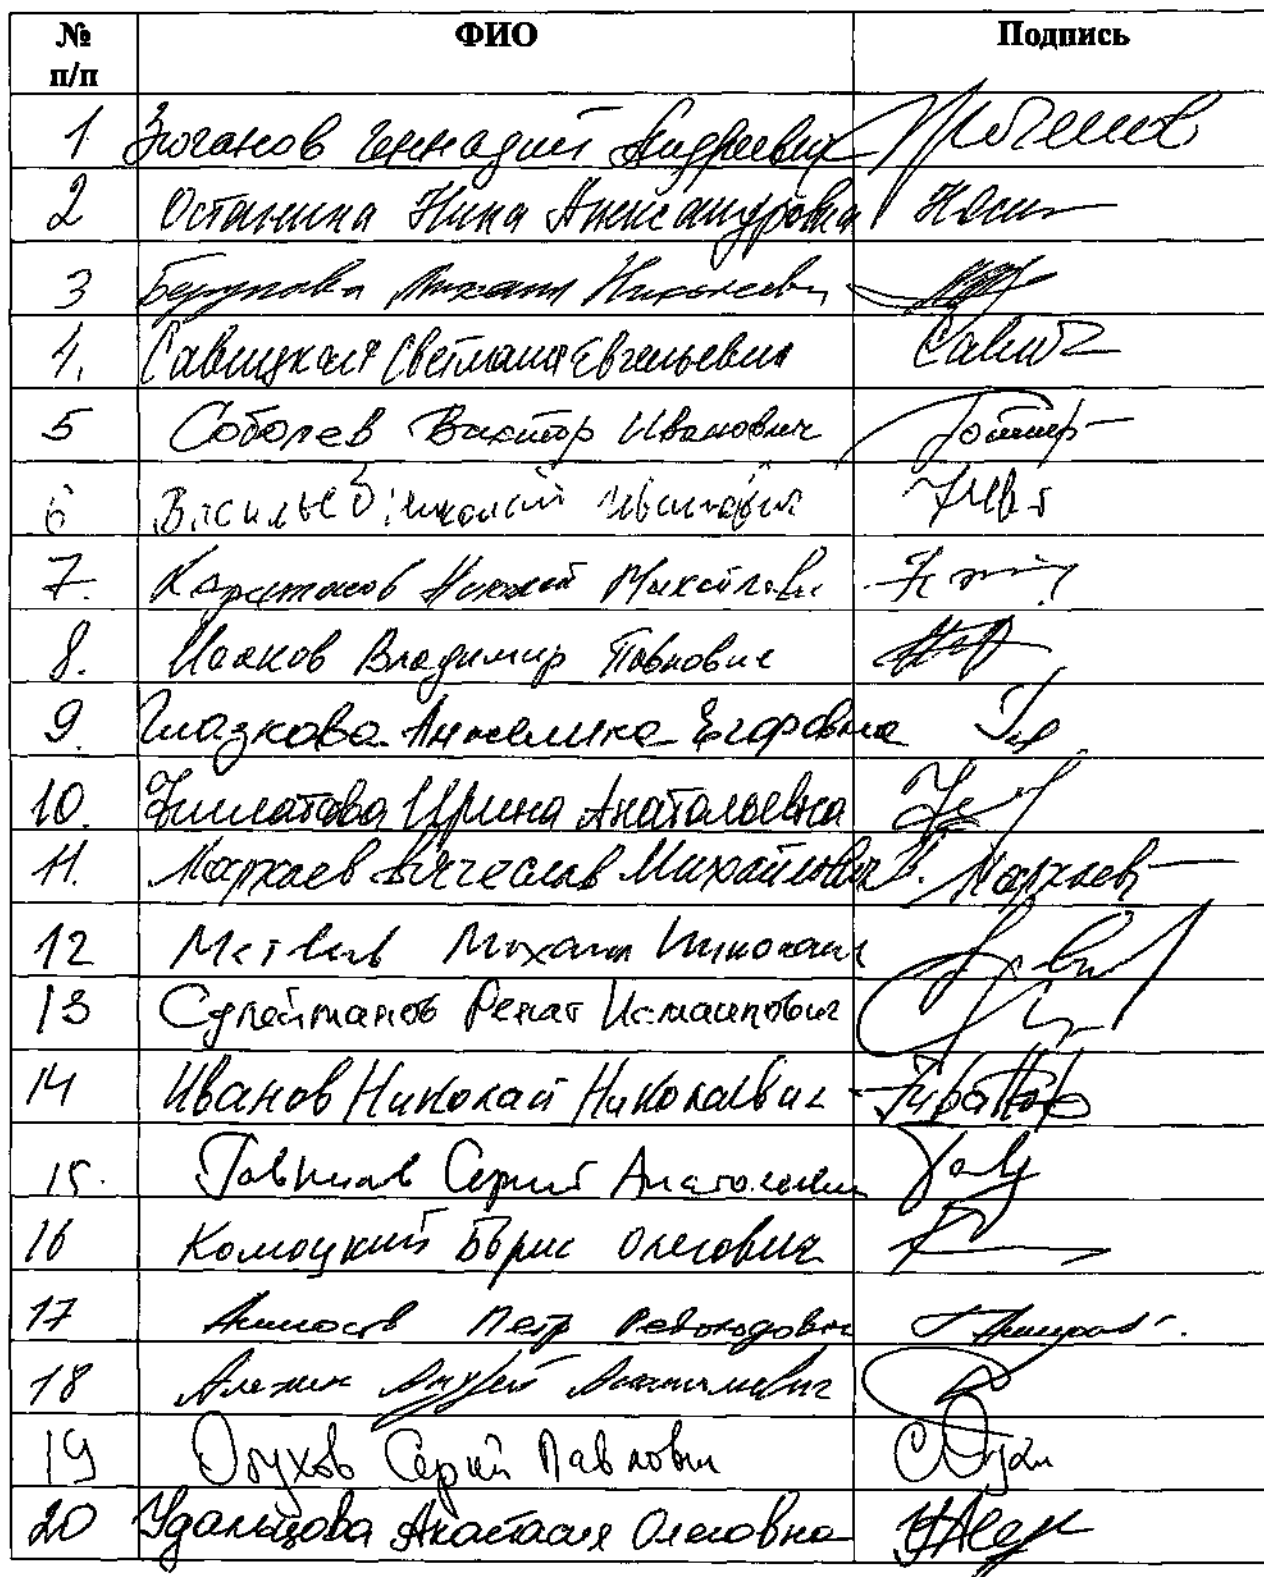 № п/п ФИО Подпись
1 Зюганов Геннадий Андреевич
2 Останина Нина Александровна
3 Михаил Николаевич
4. Савицкая Светлана Евгеньевна
5 Соболев Виктор Иванович
6 Васильев Николай Иванович
7. Харитонов Николай Михайлович
8. Исаков Владимир Павлович
9. Глазкова Анжелика Егоровна
10. Филатова Ирина Анатольевна
11. Мархаев Вячеслав Михайлович В. Мархаев
12 Матвеев Михаил Николаевич
13 Сулейманов Ренат Исмаилович
14 Иванов Николай Николаевич
15. Гаврилов Сергей Анатольевич
16 Комоцкий Борис Олегович
17 Аммосов Петр Револьдович
18 Алехин Андрей Анатольевич
19 Обухов Сергей Павлович
20 Удальцова Анастасия Олеговна